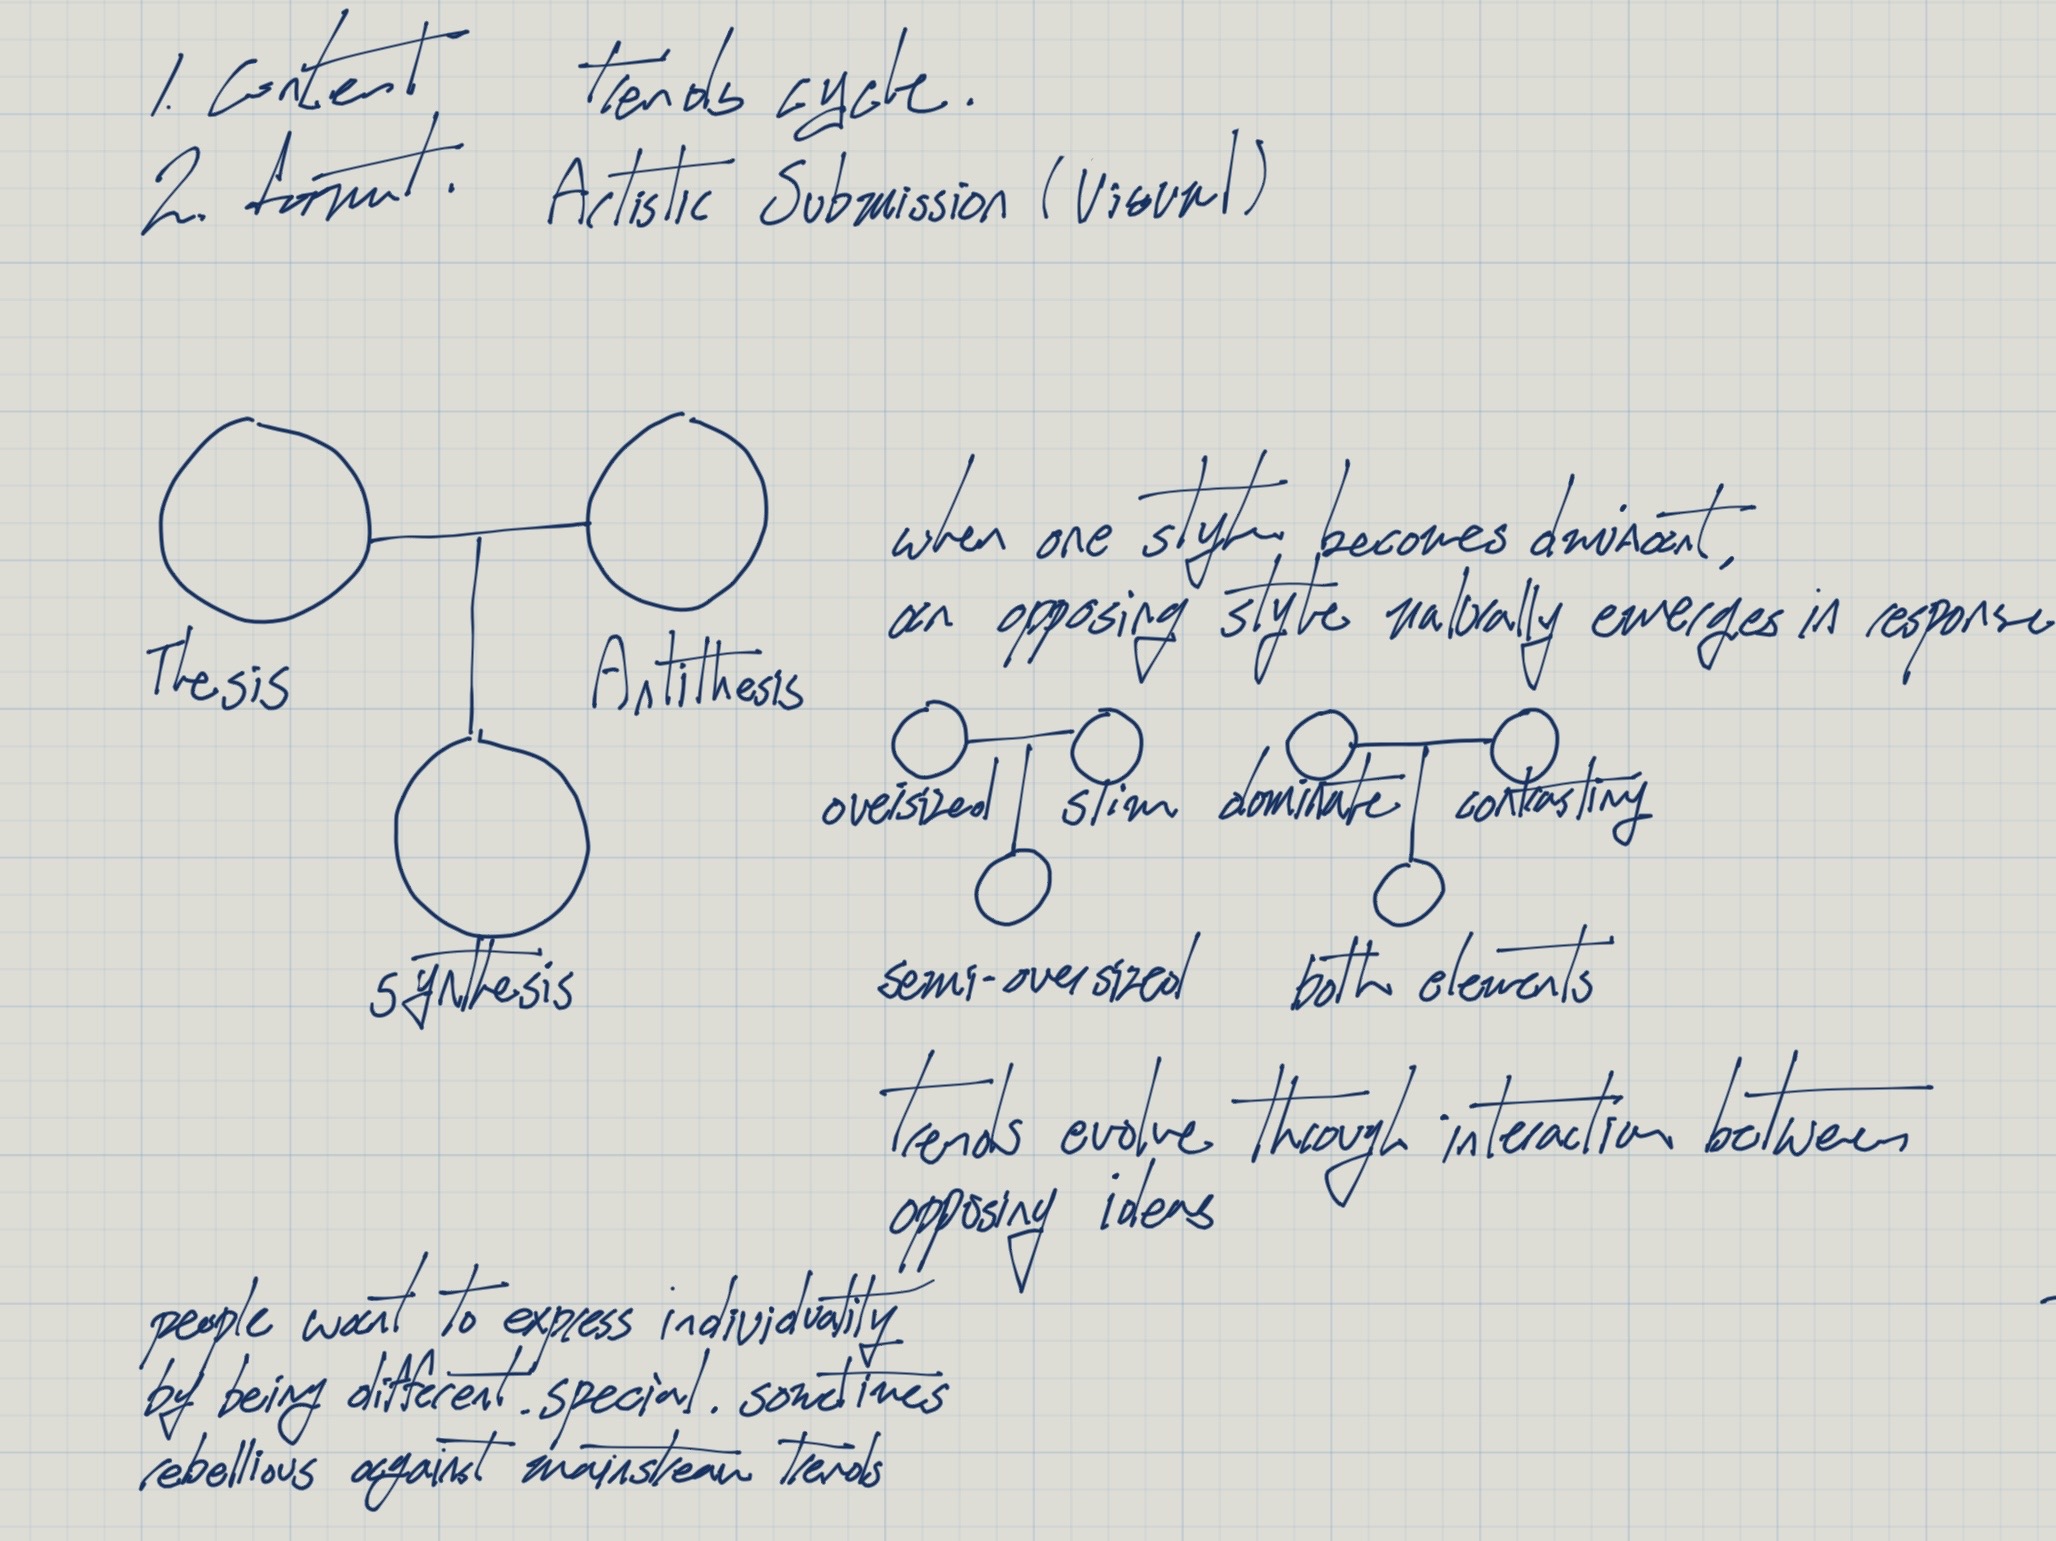 1. Content trends cycle.
2. format. Artistic Submission (Visual)
Thesis
Antithesis
synthesis
when one style becomes dominant,
an opposing style naturally emerges in response
oversized slim dominate contrasting
semi-oversized both elements
trends evolve through interaction between
opposing ideas
people want to express individuality
by being different. special. sometimes
rebellious against mainstream trends